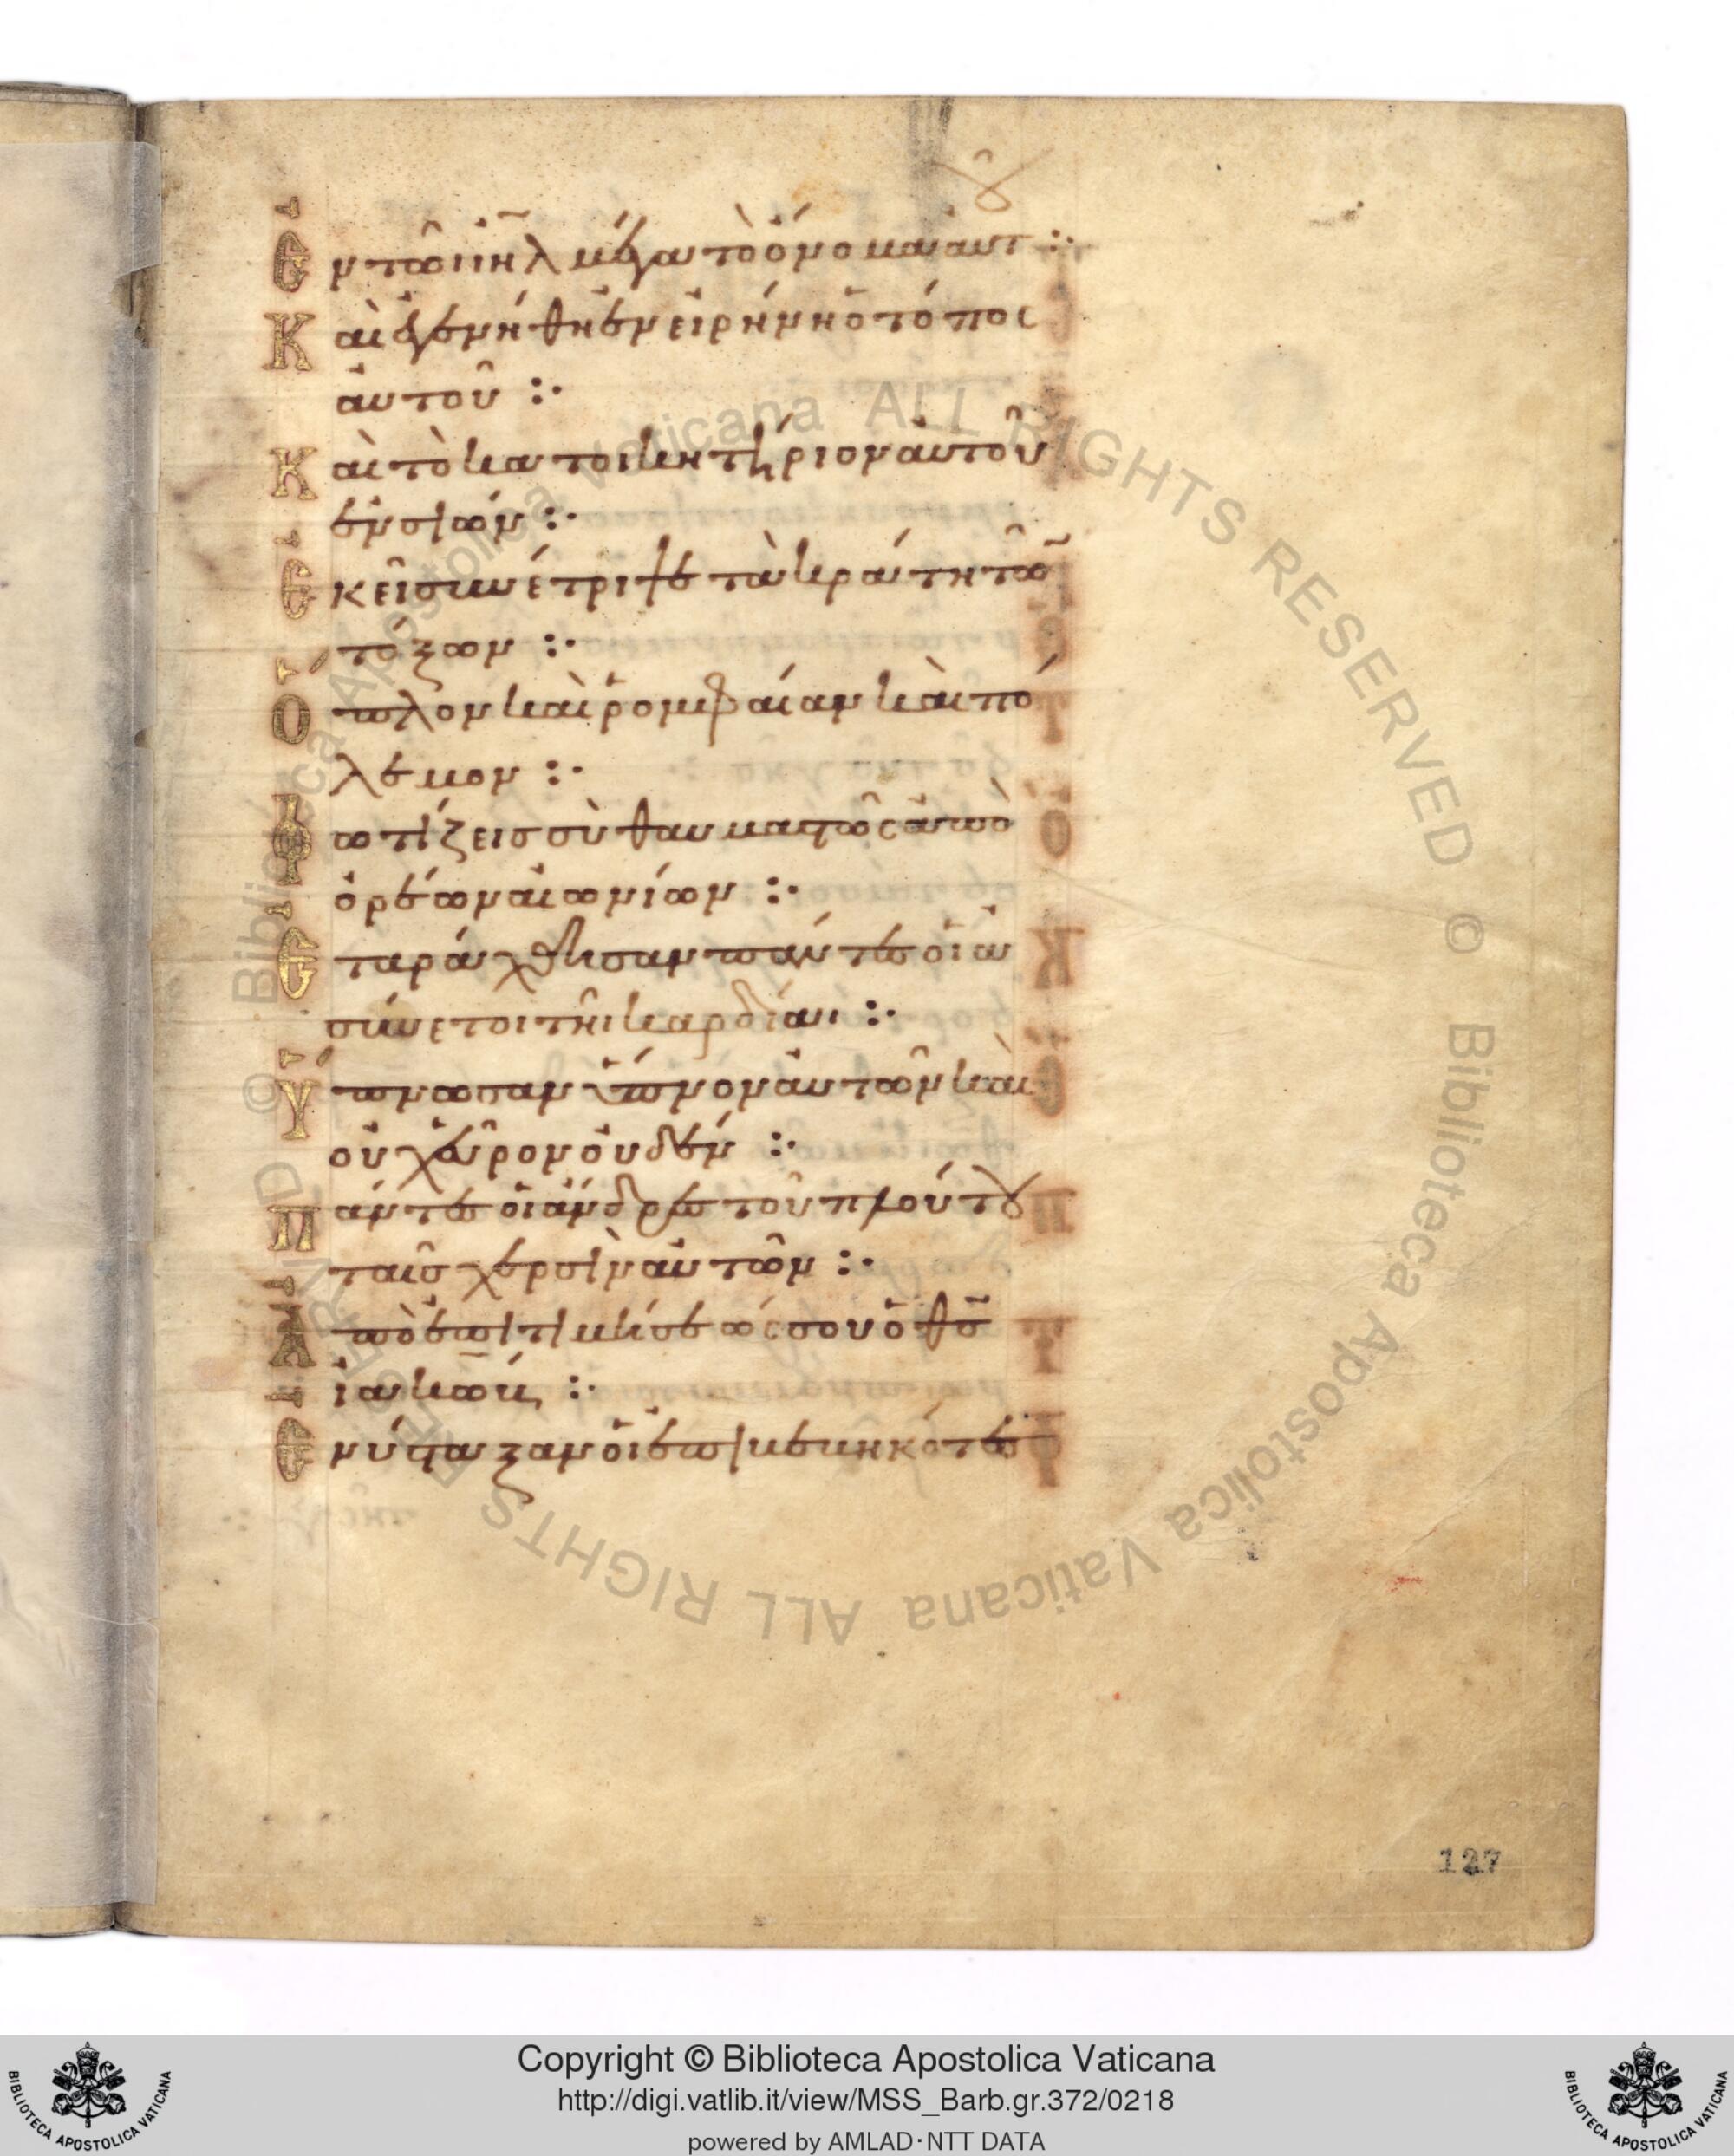 Ἐν τῶ ιῆλ μέγα τὸ ὄνομα αὐτοῦ :·
Καὶ ἐγενήθη ἐν εἰρήνη ὁ τόπος
αὐτοῦ :·
Καὶ τὸ κατοικητήριον αὐτοῦ
ἐν σιών :·
Ἐκεῖ συνέτριψε τὰ κράτη τῶ̃
τόξων :·
Ὅπλον καὶ ῥομφαίαν καὶ πό
λεμον :·
Φωτίζεις σὺ θαυμαστῶς ἀπὸ
ὀρέων αἰωνίων :·
Ἐταράχθησαν πάντες οἱ ἀ
σύνετοι τῆι καρδίαι :·
Ὕπνωσαν ὕπνον αὐτῶν καὶ
οὐχ εὗρον οὐδέν :·
Πάντες οἱ ἄνδρες τοῦ πλούτου
ταῖς χερσὶν αὐτῶν :·
Ἀπὸ ἐπιτιμήσεώς σου ὁ θς̃
ἰακώβ :·
Ἐνύσταξαν οἱ ἐπιβεβηκότες
127
Copyright © Biblioteca Apostolica Vaticana
http://digi.vatlib.it/view/MSS_Barb.gr.372/0218
powered by AMLAD·NTT DATA
BIBLIOTECA APOSTOLICA VATICANA
BIBLIOTECA APOSTOLICA VATICANA
© Biblioteca Apostolica Vaticana ALL RIGHTS RESERVED © Biblioteca Apostolica Vaticana ALL RIGHTS RESERVED